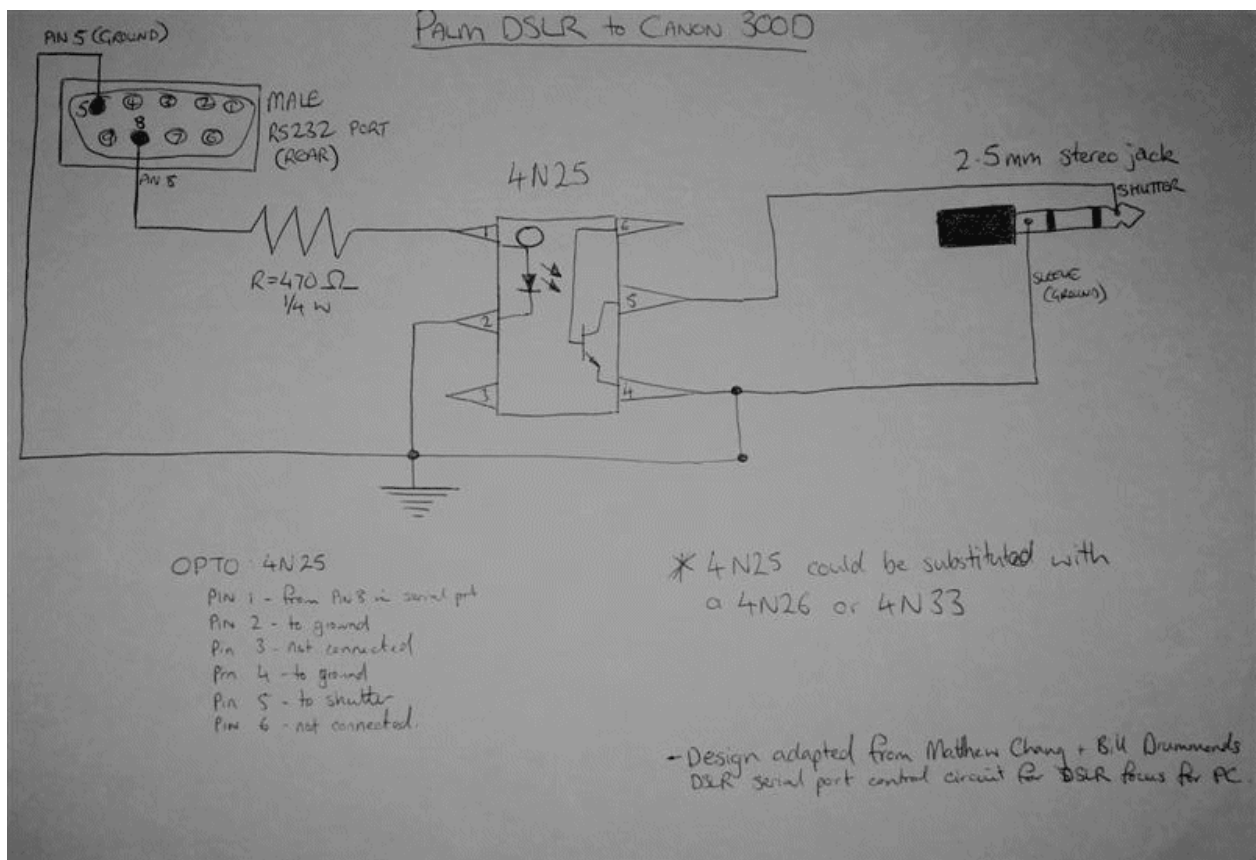 PALM DSLR to CANON 300D
PIN 5 (GROUND)
5 4 3 2 1
9 8 7 6
MALE
RS232 PORT
(REAR)
PIN 8
4N25
2.5mm stereo jack
SHUTTER
R=470Ω
1/4 W
SLEEVE
(GROUND)
1
2
3
6
5
4
OPTO 4N25
PIN 1 - from PIN 8 in serial port
PIN 2 - to ground
Pin 3 - not connected
Pin 4 - to ground
Pin 5 - to shutter
PIN 6 - not connected.
* 4N25 could be substituted with
a 4N26 or 4N33
- Design adapted from Matthew Chang + Bill Drummonds
DSLR serial port control circuit for DSLR focus for PC.